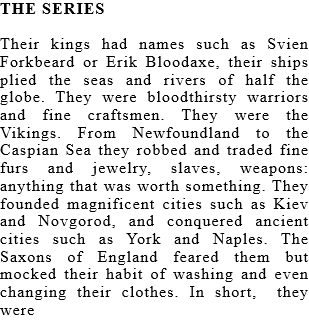 THE SERIES
Their kings had names such as Svien
Forkbeard or Erik Bloodaxe, their ships
plied the seas and rivers of half the
globe. They were bloodthirsty warriors
and fine craftsmen. They were the
Vikings. From Newfoundland to the
Caspian Sea they robbed and traded fine
furs and jewelry, slaves, weapons:
anything that was worth something. They
founded magnificent cities such as Kiev
and Novgorod, and conquered ancient
cities such as York and Naples. The
Saxons of England feared them but
mocked their habit of washing and even
changing their clothes. In short, they
were